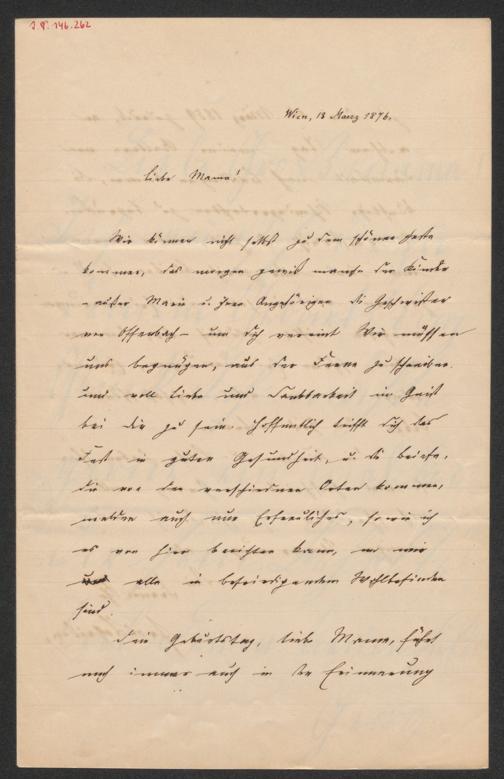 I.N. 146.262
Wien, 18 Maerz 1876.
Liebe Mama!
Wir können nicht selbst zu dem schönen Feste
kommen, das morgen gewiß manche der Kinder
– außer Marie u. ihren Angehörigen die Geschwister
von Offenbach – um dich vereint. Wir müssen
uns begnügen, aus der Ferne zu schreiben
und voll Liebe und Dankbarkeit im Geist
bei dir zu sein. Hoffentlich trifft dich das
Fest in guter Gesundheit, u. die Briefe,
die von den verschiednen Orten kommen,
melden auch nur Erfreuliches, so wie ich
es von hier berichten kann, wo wir
alle in befriedigendem Wohlbefinden
sind.
Dein Geburtstag, liebe Mama, führt
mich immer auch in die Erinnerung